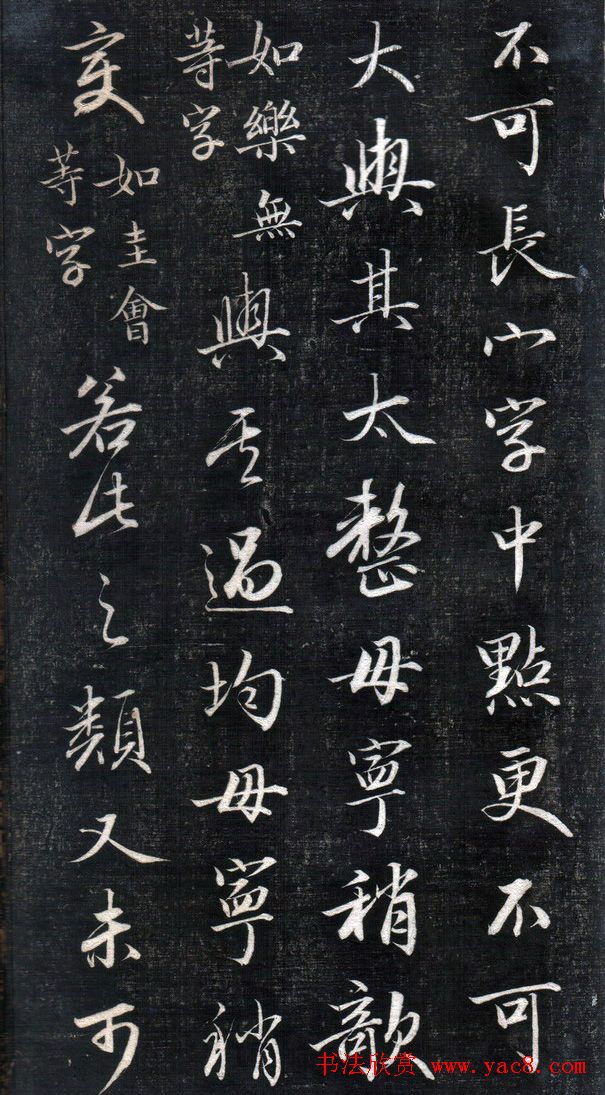 不可長宀字中點更不可
大與其太整毋寧稍欹
如樂無
等字
與其過均毋寧稍
変
如圭會
等字
若此之類又未可
书法欣赏 www.yac8.com